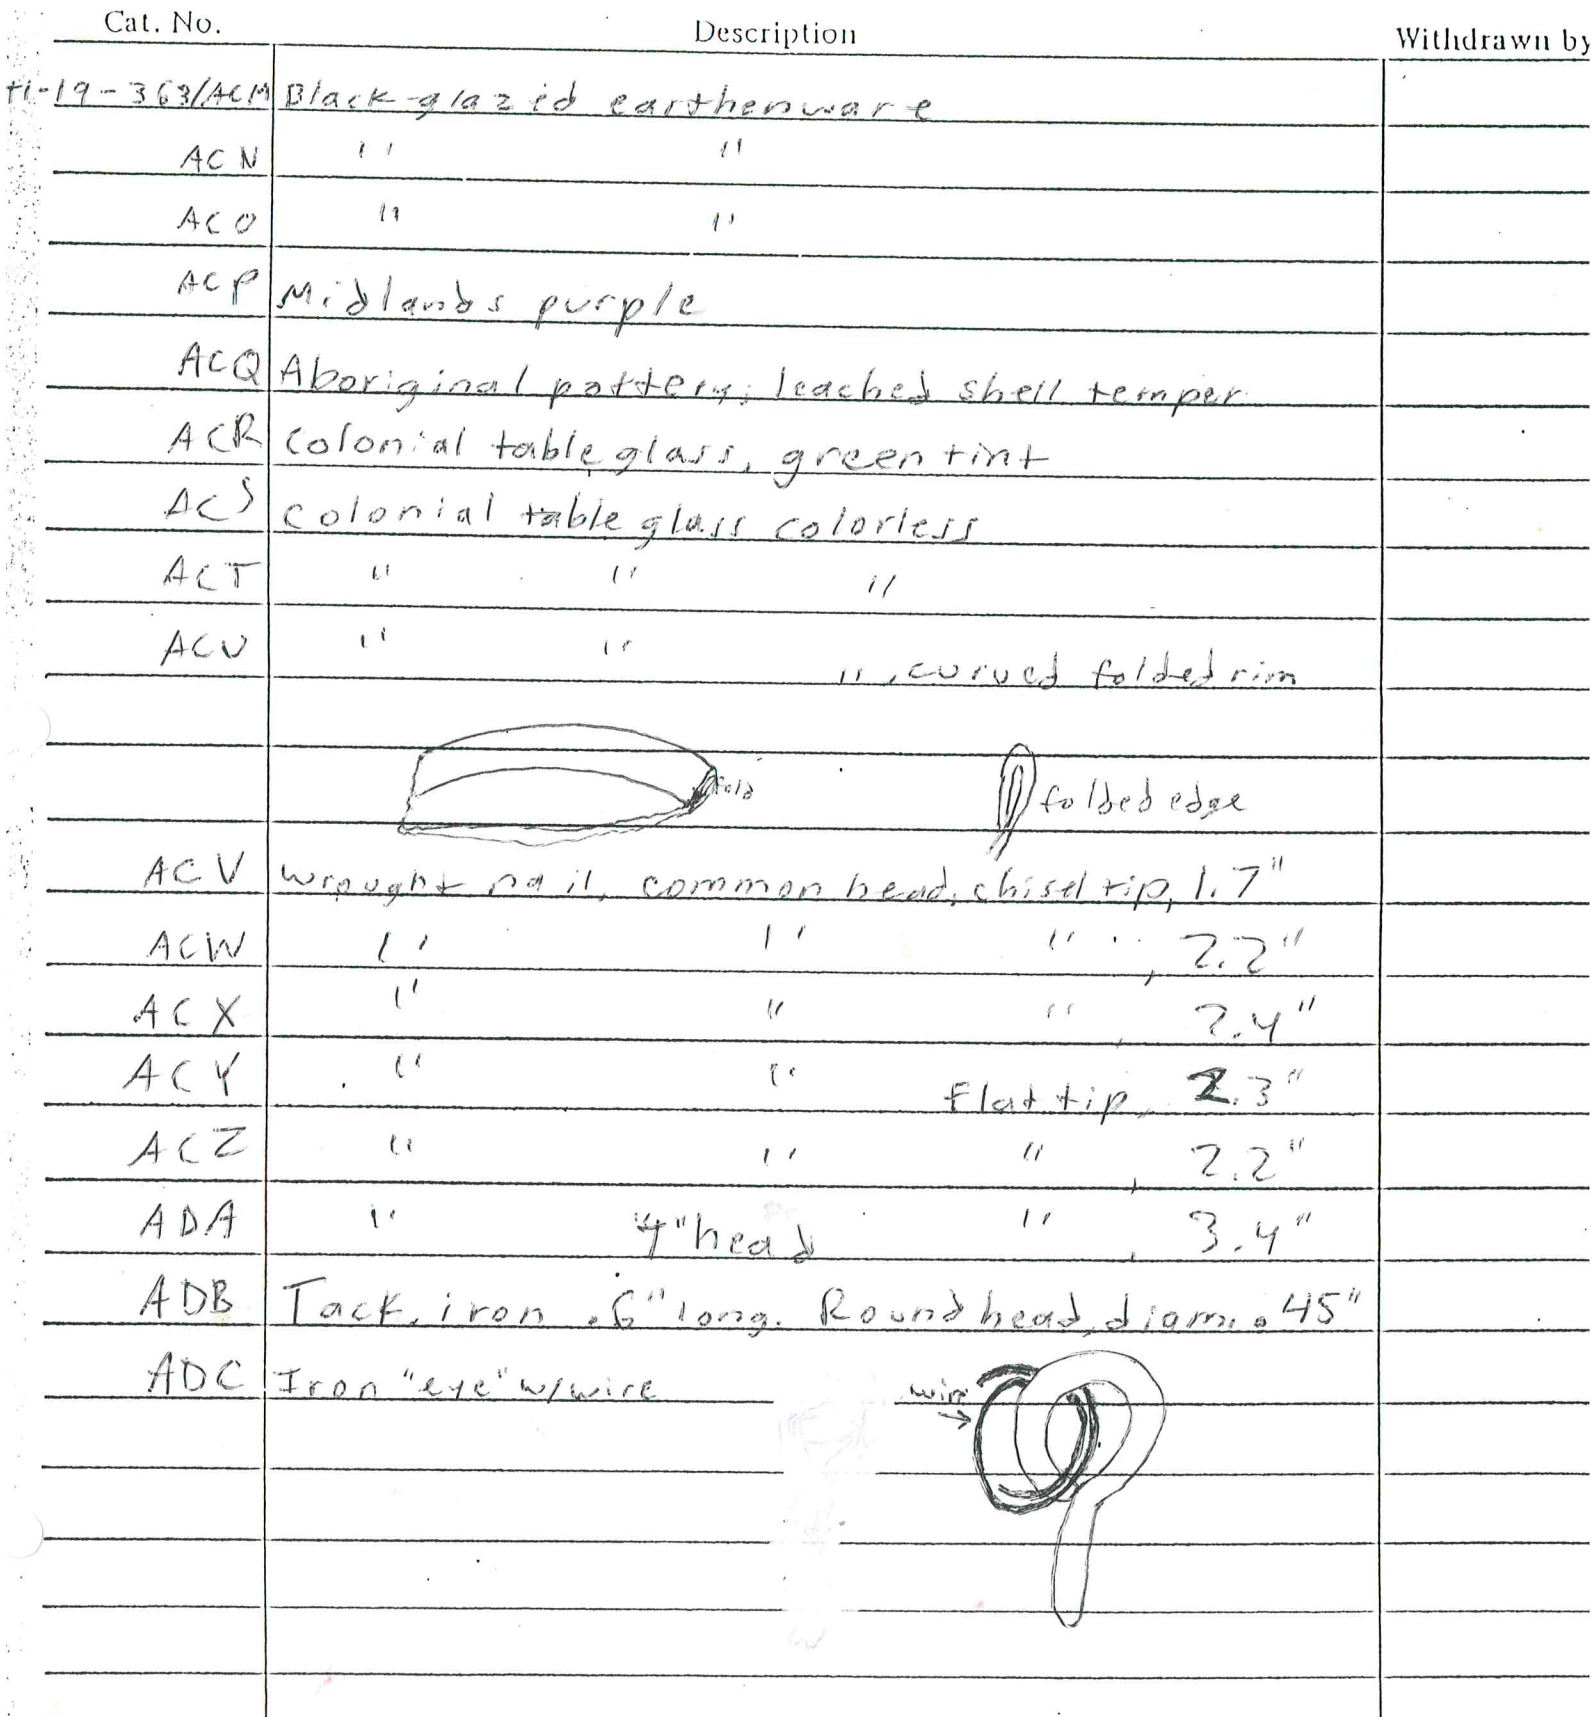 Cat. No. Description Withdrawn by
-19-363/ACM Black-glazed earthenware
ACN " "
ACO " "
ACP Midlands purple
ACQ Aboriginal pottery; leached shell temper
ACR Colonial table glass, green tint
ACS Colonial table glass colorless
ACT " " "
ACU " " ", curved folded rim
fold folded edge
ACV Wrought nail, common head, chisel tip, 1.7"
ACW " " ", 2.2"
ACX " " ", 2.4"
ACY " " Flat tip, 2.3"
ACZ " " ", 2.2"
ADA " head ", 3.4"
ADB Tack, iron .6" long. Round head, diam. .45"
ADC Iron "eye" w/wire wire